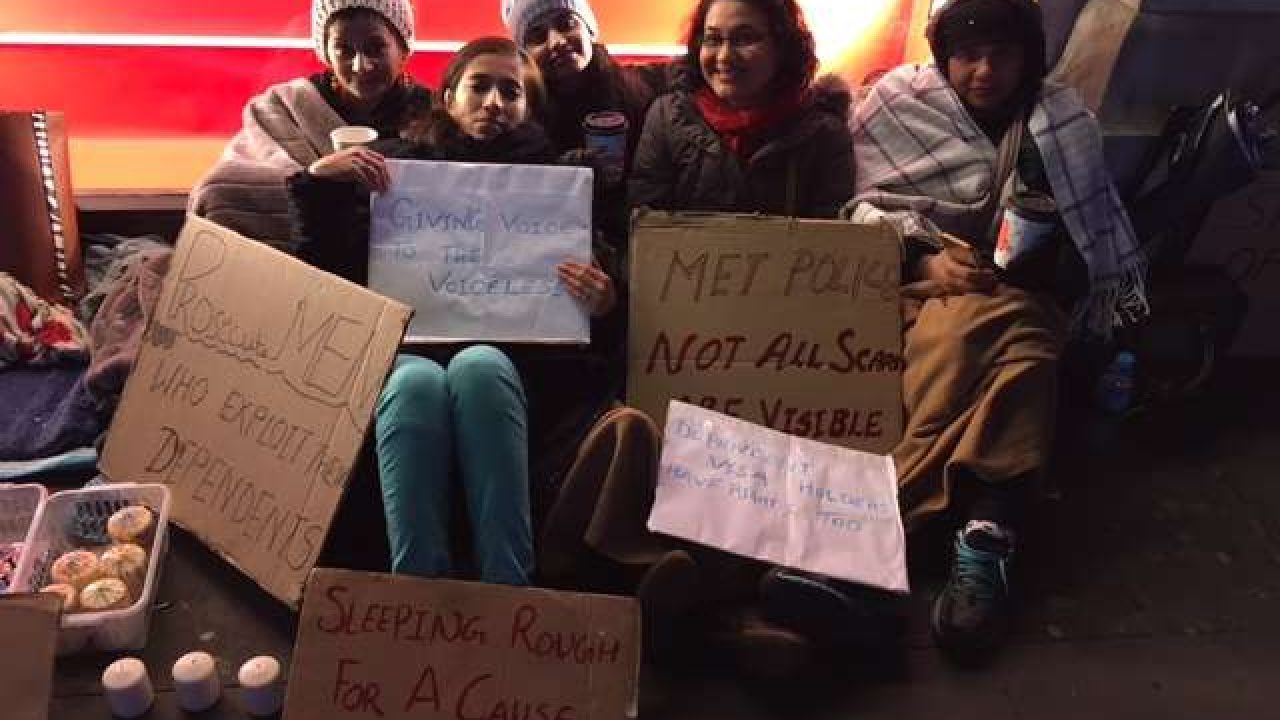 GIVING VOICE
TO THE
VOICELESS
MET POLICE
NOT ALL SCARS
ARE VISIBLE
Prosecute MEN
WHO EXPLOIT THEIR
DEPENDENTS
DEPENDENT
VISA HOLDERS
HAVE RIGHTS TOO
SLEEPING ROUGH
FOR A CAUSE